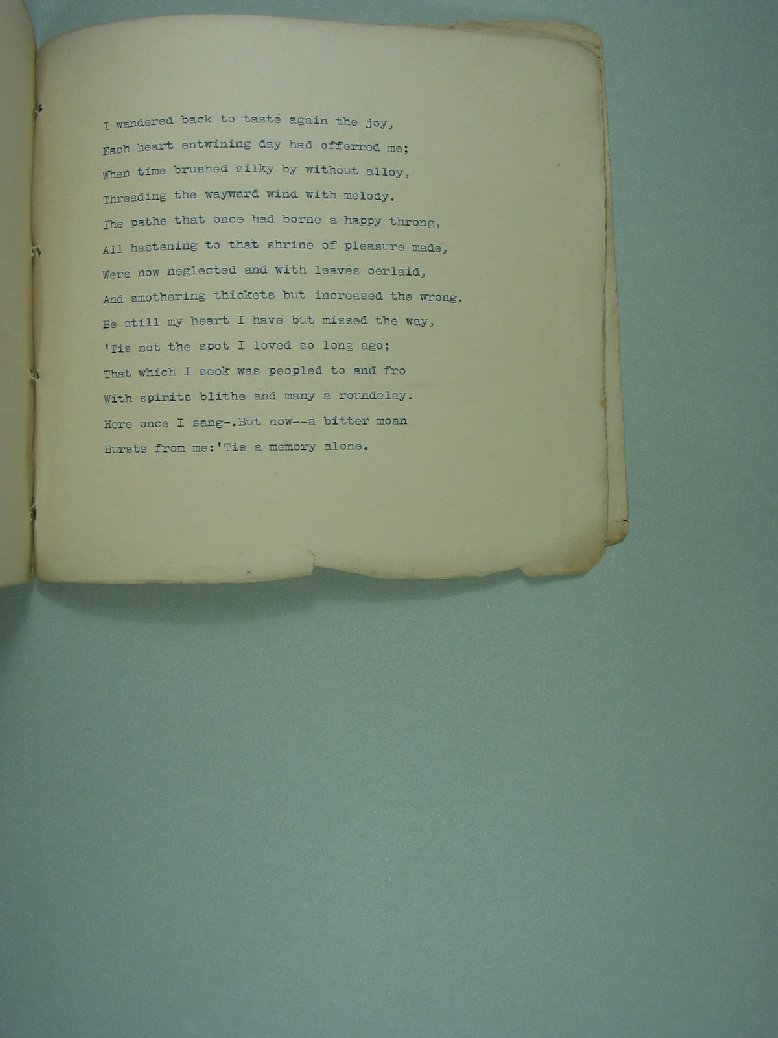 I wandered back to taste again the joy,
Each heart entwining day had offerred me;
When time brushed silky by without alloy,
Threading the wayward wind with melody.
The paths that once had borne a happy throng,
All hastening to that shrine of pleasure made,
Were now neglected and with leaves oerlaid,
And smothering thickets but increased the wrong.
Be still my heart I have but missed the way,
'Tis not the spot I loved so long ago;
That which I seek was peopled to and fro
With spirits blithe and many a roundelay.
Here once I sang-.But now--a bitter moan
Bursts from me:'Tis a memory alone.